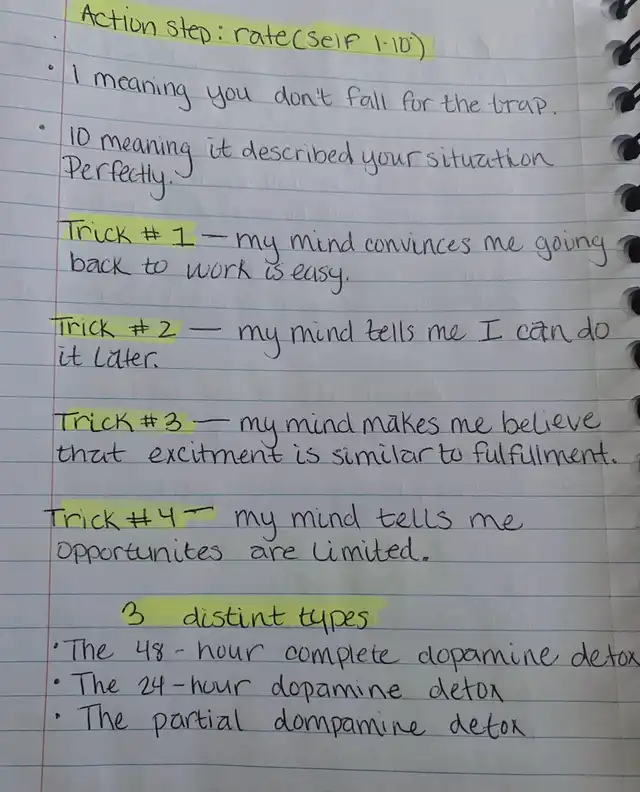 Action step: rate(self 1-10)
• 1 meaning you don't fall for the trap.
• 10 meaning it described your situation
Perfectly.
Trick # 1 — my mind convinces me going
back to work is easy.
Trick # 2 — my mind tells me I can do
it later.
Trick # 3 — my mind makes me believe
that excitment is similar to fulfullment.
Trick # 4 — my mind tells me
opportunites are limited.
3 distint types
• The 48-hour complete dopamine detox
• The 24-hour dopamine detox
• The partial dompamine detox